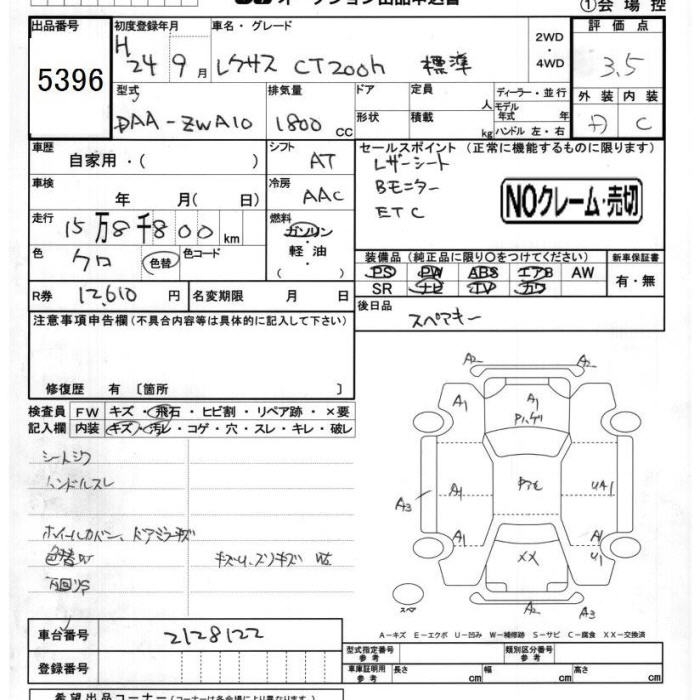 ①会場控
出品番号
5396
初度登録年月
H 24 9月
車名・グレード
レクサス CT200h 標準
2WD
・
4WD
評価点
3.5
外装 内装
C
型式
DAA-ZWA10
排気量
1800 cc
ドア
形状
定員
人
積載
kg
ディーラー・並行
モデル年式 年
ハンドル 左・右
車歴
自家用・( )
シフト
AT
車検
年 月( 日)
冷房
AAC
走行
15万8千800km
燃料
ガソリン
・
軽油
( ・ )
色
クロ
色替
色コード
R券
12,610円
名変期限 月 日
セールスポイント (正常に機能するものに限ります)
レザーシート
Bモニター
ETC
NOクレーム・売切
装備品(純正品に限り〇をつけてください)
PS PW ABS エアB AW
SR ナビ TV カワ
新車保証書
有・無
後日品
スペアキー
注意事項申告欄(不具合内容等は具体的に記入して下さい)
修復歴 有 〔箇所 〕
検査員
記入欄
FW キズ・飛石・ヒビ割・リペア跡・×要
内装 キズ・汚レ・コゲ・穴・スレ・キレ・破レ
シートシワ
ハンドルスレ
ホイールカバー、ドアミラーキズ
色替
A2 A2
A1 A1 A1
ハゲ
A3 A1 UA1
A1 A1
U1
XX
スペア
A2 A3
A-キズ E-エクボ U-凹み W-補修跡 S-サビ C-腐食 XX-交換済
車台番号
2128122
登録番号
型式指定番号
参考
類別区分番号
参考
車庫証明用
参考
長さ cm 幅 cm 高さ cm
希望出品コーナー(コーナーは各会場により異なります)